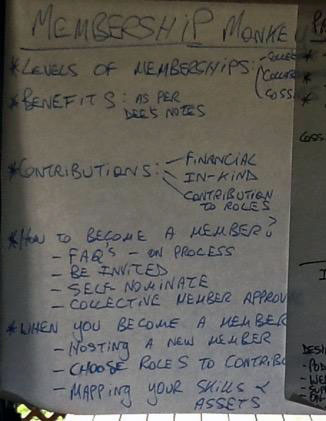 MEMBERSHIP MONKE
*LEVELS OF MEMBERSHIPS:
*BENEFITS: AS PER
DEE'S NOTES
*CONTRIBUTIONS: - FINANCIAL
- IN-KIND
CONTRIBUTION
TO ROLES
*HOW TO BECOME A MEMBER?
- FAQ'S - ON PROCESS
- BE INVITED
- SELF NOMINATE
- COLLECTIVE MEMBER APPROV
*WHEN YOU BECOME A MEMBER
- HOSTING A NEW MEMBER
- CHOOSE ROLES TO CONTRIB
- MAPPING YOUR SKILLS &
ASSETS